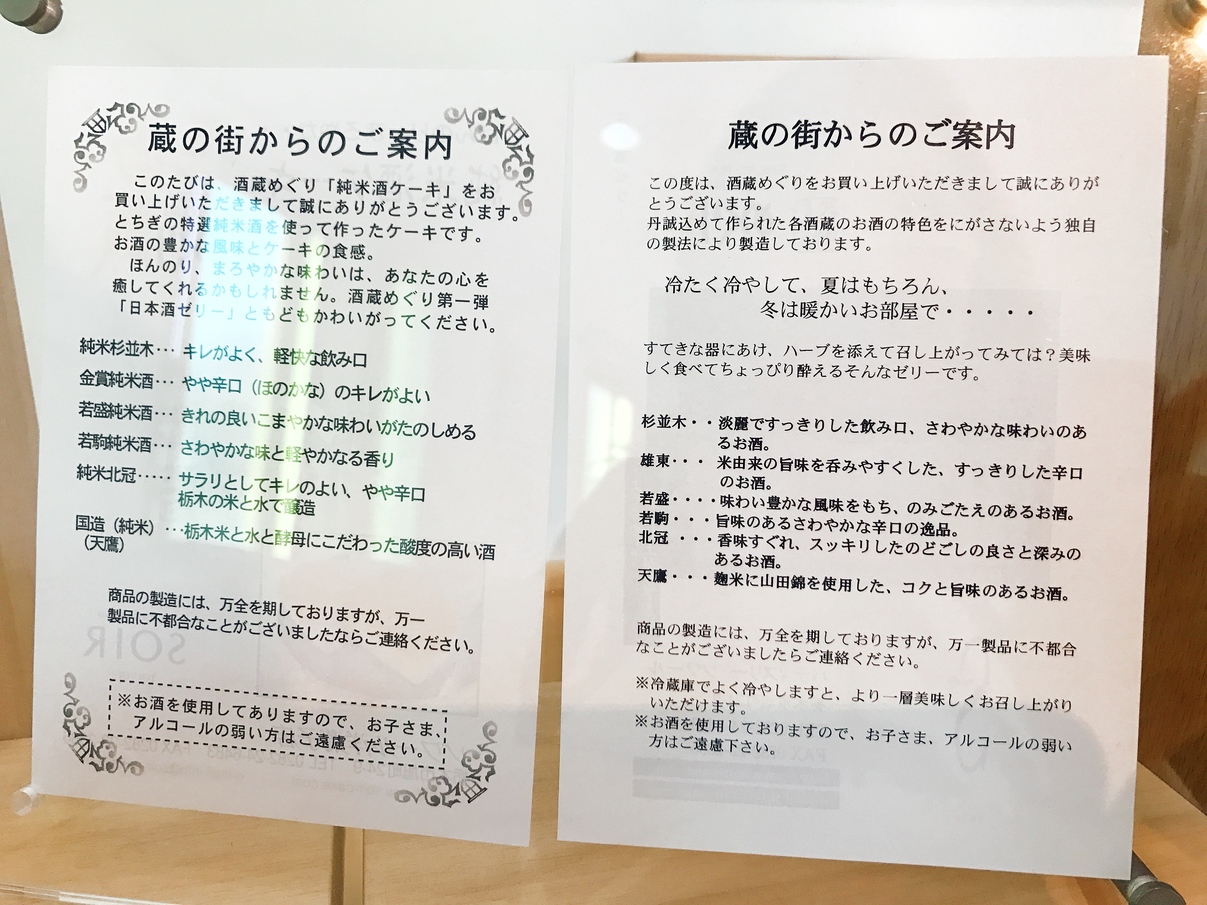 蔵の街からのご案内
このたびは、酒蔵めぐり「純米酒ケーキ」をお
買い上げいただきまして誠にありがとうございます。
とちぎの特選純米酒を使って作ったケーキです。
お酒の豊かな風味とケーキの食感。
ほんのり、まろやかな味わいは、あなたの心を
癒してくれるかもしれません。酒蔵めぐり第一弾
「日本酒ゼリー」ともどもかわいがってください。
純米杉並木･･･ キレがよく、軽快な飲み口
金賞純米酒･･･ やや辛口（ほのかな）のキレがよい
若盛純米酒･･･ きれの良いこまやかな味わいがたのしめる
若駒純米酒･･･ さわやかな味と軽やかなる香り
純米北冠･････ サラリとしてキレのよい、やや辛口
栃木の米と水で醸造
国造（純米） ･･･栃木米と水と酵母にこだわった酸度の高い酒
（天鷹）
商品の製造には、万全を期しておりますが、万一
製品に不都合なことがございましたならご連絡ください。
※お酒を使用してありますので、お子さま、
アルコールの弱い方はご遠慮ください。
SOIR
蔵の街からのご案内
この度は、酒蔵めぐりをお買い上げいただきまして誠にありが
とうございます。
丹誠込めて作られた各酒蔵のお酒の特色をにがさないよう独自
の製法により製造しております。
冷たく冷やして、夏はもちろん、
冬は暖かいお部屋で・・・・・
すてきな器にあけ、ハーブを添えて召し上がってみては？美味
しく食べてちょっぴり酔えるそんなゼリーです。
杉並木・・淡麗ですっきりした飲み口、さわやかな味わいのあ
るお酒。
雄東・・・ 米由来の旨味を呑みやすくした、すっきりした辛口
のお酒。
若盛・・・・味わい豊かな風味をもち、のみごたえのあるお酒。
若駒・・・旨味のあるさわやかな辛口の逸品。
北冠 ・・・香味すぐれ、スッキリしたのどごしの良さと深みの
あるお酒。
天鷹・・・麹米に山田錦を使用した、コクと旨味のあるお酒。
商品の製造には、万全を期しておりますが、万一製品に不都合
なことがございましたらご連絡ください。
※冷蔵庫でよく冷やしますと、より一層美味しくお召し上がり
いただけます。
※お酒を使用しておりますので、お子さま、アルコールの弱い
方はご遠慮下さい。